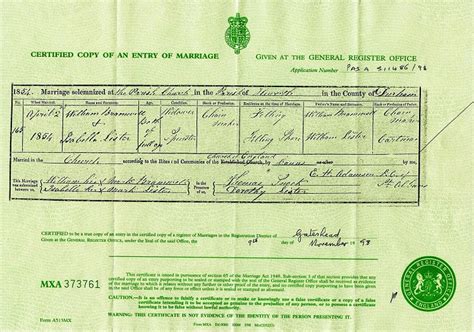 CERTIFIED COPY OF AN ENTRY OF MARRIAGE
GIVEN AT THE GENERAL REGISTER OFFICE
Application Number PAS A 511486/98
1854. Marriage solemnized at the Parish Church in the Parish of Heworth in the County of Durham
No. When Married Name and Surname Age Condition Rank or Profession Residence at the time of Marriage Father's Name and Surname Rank or Profession of Father
165 April 2 1854 William Bramwell of Widower Chain maker Felling William Bramwell Chain maker
Isabella Lister of full age Spinster Felling Shore William Lister Cartman
Married in the Church according to the Rites and Ceremonies of the Established Church, by Banns
Church of England
This Marriage was solemnized between us,
Mark Bramwell
Isabella Mark Lister
in the presence of us,
Thomas
Dorothy Lister
E. H. Adamson
CERTIFIED to be a true copy of an entry in the certified copy of a register of Marriages in the Registration District of Gateshead
Given at the GENERAL REGISTER OFFICE, under the Seal of the said Office, the 9th November 1998
MXA 373761
This certificate is issued in pursuance of section 65 of the Marriage Act 1949. Sub-section 3 of that section provides that any certified copy of an entry purporting to be sealed or stamped with the seal of the General Register Office shall be received as evidence of the marriage to which it relates without any further or other proof of the entry, and no certified copy purporting to have been given in the said Office shall be of any force or effect unless it is sealed or stamped as aforesaid.
CAUTION:- It is an offence to falsify a certificate or to make or knowingly use a false certificate or a copy of a false certificate intending it to be accepted as genuine to the prejudice of any person, or to possess a certificate knowing it to be false without lawful authority.
WARNING: THIS CERTIFICATE IS NOT EVIDENCE OF THE IDENTITY OF THE PERSON PRESENTING IT.
GENERAL REGISTER OFFICE
ENGLAND
Form A513MX